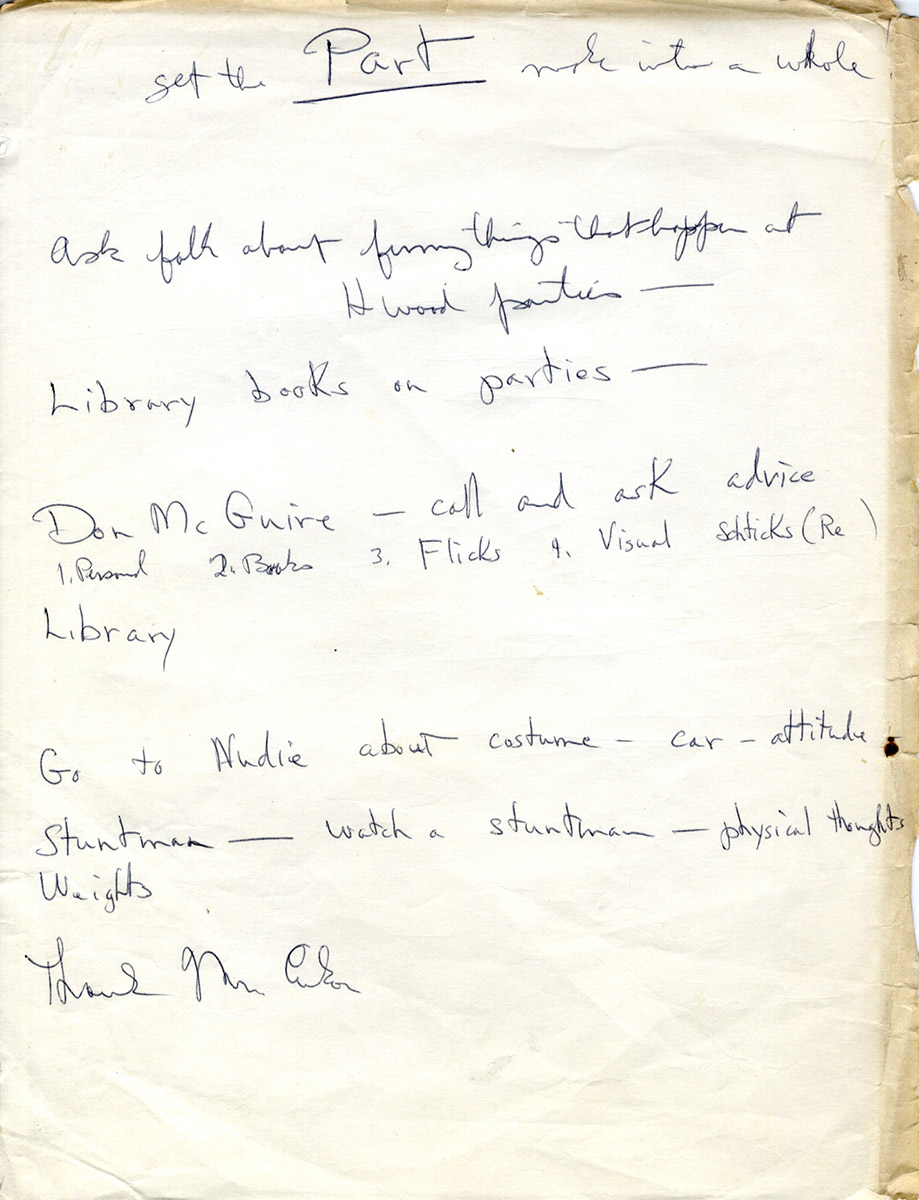 get the Part make into a whole
Ask folk about funny things that happen at
H wood parties —
Library books on parties —
Don McGuire — call and ask advice
1. Personal 2. Books 3. Flicks 4. Visual Schticks (Re )
Library
Go to Nudie about costume – car – attitude –
Stuntman — watch a stuntman — physical thoughts
Weights
Thank Mr. Cukor